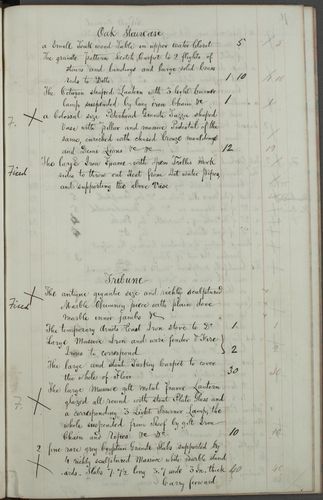 Oak Staircase
a Small Teak wood Table in upper water Closet 5
The granite pattern Scotch Carpet to 2 flights of
stairs and landings and large solid brass
rods to Ditto 1 10
The Octagon shaped Lantern with 3 light Burner
lamp suspended by long iron Chain &c 1
a Colossal size Peterhead Granite Tazza shaped
Vase with Pillar and massive Pedestal of the
same, enriched with chased bronze mouldings
and Lions &c &c 12
Fixed The large Iron Frame with open Trellis work
sides to throw out Heat from Hot water pipes
and supporting the above Vase
Tribune
Fixed The antique gigantic size and richly sculptured
Marble Chimney piece with plain dove
Marble inner jambs &c
The temporary Iron stove to Do 1
Large Massive Iron and wire fender & Fire
Irons to correspond 2
The large and stout Turkey Carpet to cover
the whole of Floor 30
The large Massive gilt metal frame Lantern
glazed all round with stout Plate Glass and
a corresponding 3 Light Burner Lamp, the
whole suspended from Roof by gilt Iron
Chain and Ropes &c &c 10
2 fine rare grey Egyptian Granite Slabs supported by
4 richly sculptured Massive white marble stand
ards. Slabs 7.7½ long 3.7 wide 3 in. thick 40
Carry forward